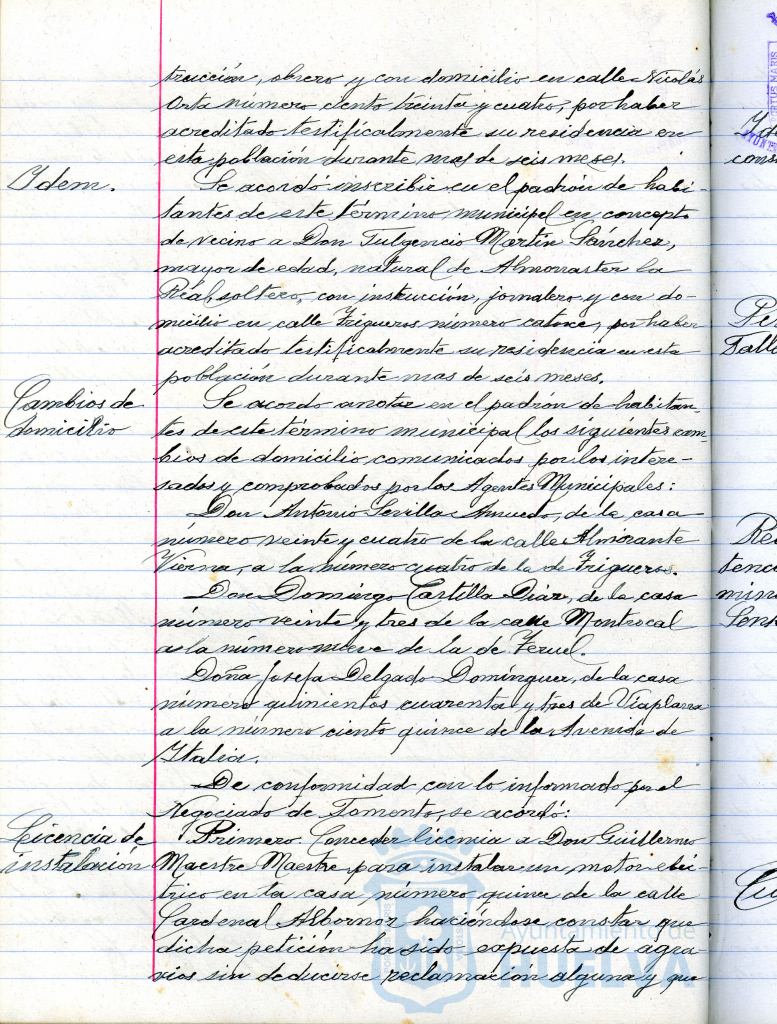 trucción, obrero y con domicilio en calle Nicolás
Orta número ciento treinta y cuatro, por haber
acreditado testificalmente su residencia en
esta población durante mas de seis meses.
Idem.
Se acordó inscribir en el padrón de habi-
tantes de este término municipal en concepto
de vecino a Don Fulgencio Martín Sánchez,
mayor de edad, natural de Almonaster la
Real, soltero, con instrucción, jornalero y con do-
micilio en calle Trigueros número catorce, por haber
acreditado testificalmente su residencia en esta
población durante mas de seis meses.
Cambios de
domicilio
Se acordo anotar en el padrón de habitan-
tes de este término municipal los siguientes cam-
bios de domicilio comunicados por los intere-
sados y comprobados por los Agentes Municipales:
Don Antonio Sevilla de la casa
número veinte y cuatro de la calle Almirante
Vierna, a la número cuatro de la de Trigueros.
Don Domingo Castilla Díaz, de la casa
número veinte y tres de la calle Montrocal
a la número nueve de la de Teruel.
Doña Josefa Delgado Domínguez, de la casa
número quinientos cuarenta y tres de Viaplana
a la número ciento quince de la Avenida de
Italia.
De conformidad con lo informado por el
Negociado de Fomento, se acordó:
Licencia de
instalación
Primero. Conceder licencia a Don Guillermo
Maestre Maestre para instalar un motor eléc-
trico en la casa, número quince de la calle
Cardenal Albornoz haciéndose constar que
dicha petición ha sido expuesta de agra-
vios sin deducirse reclamación alguna y que
Ayuntamiento de
HUELVA